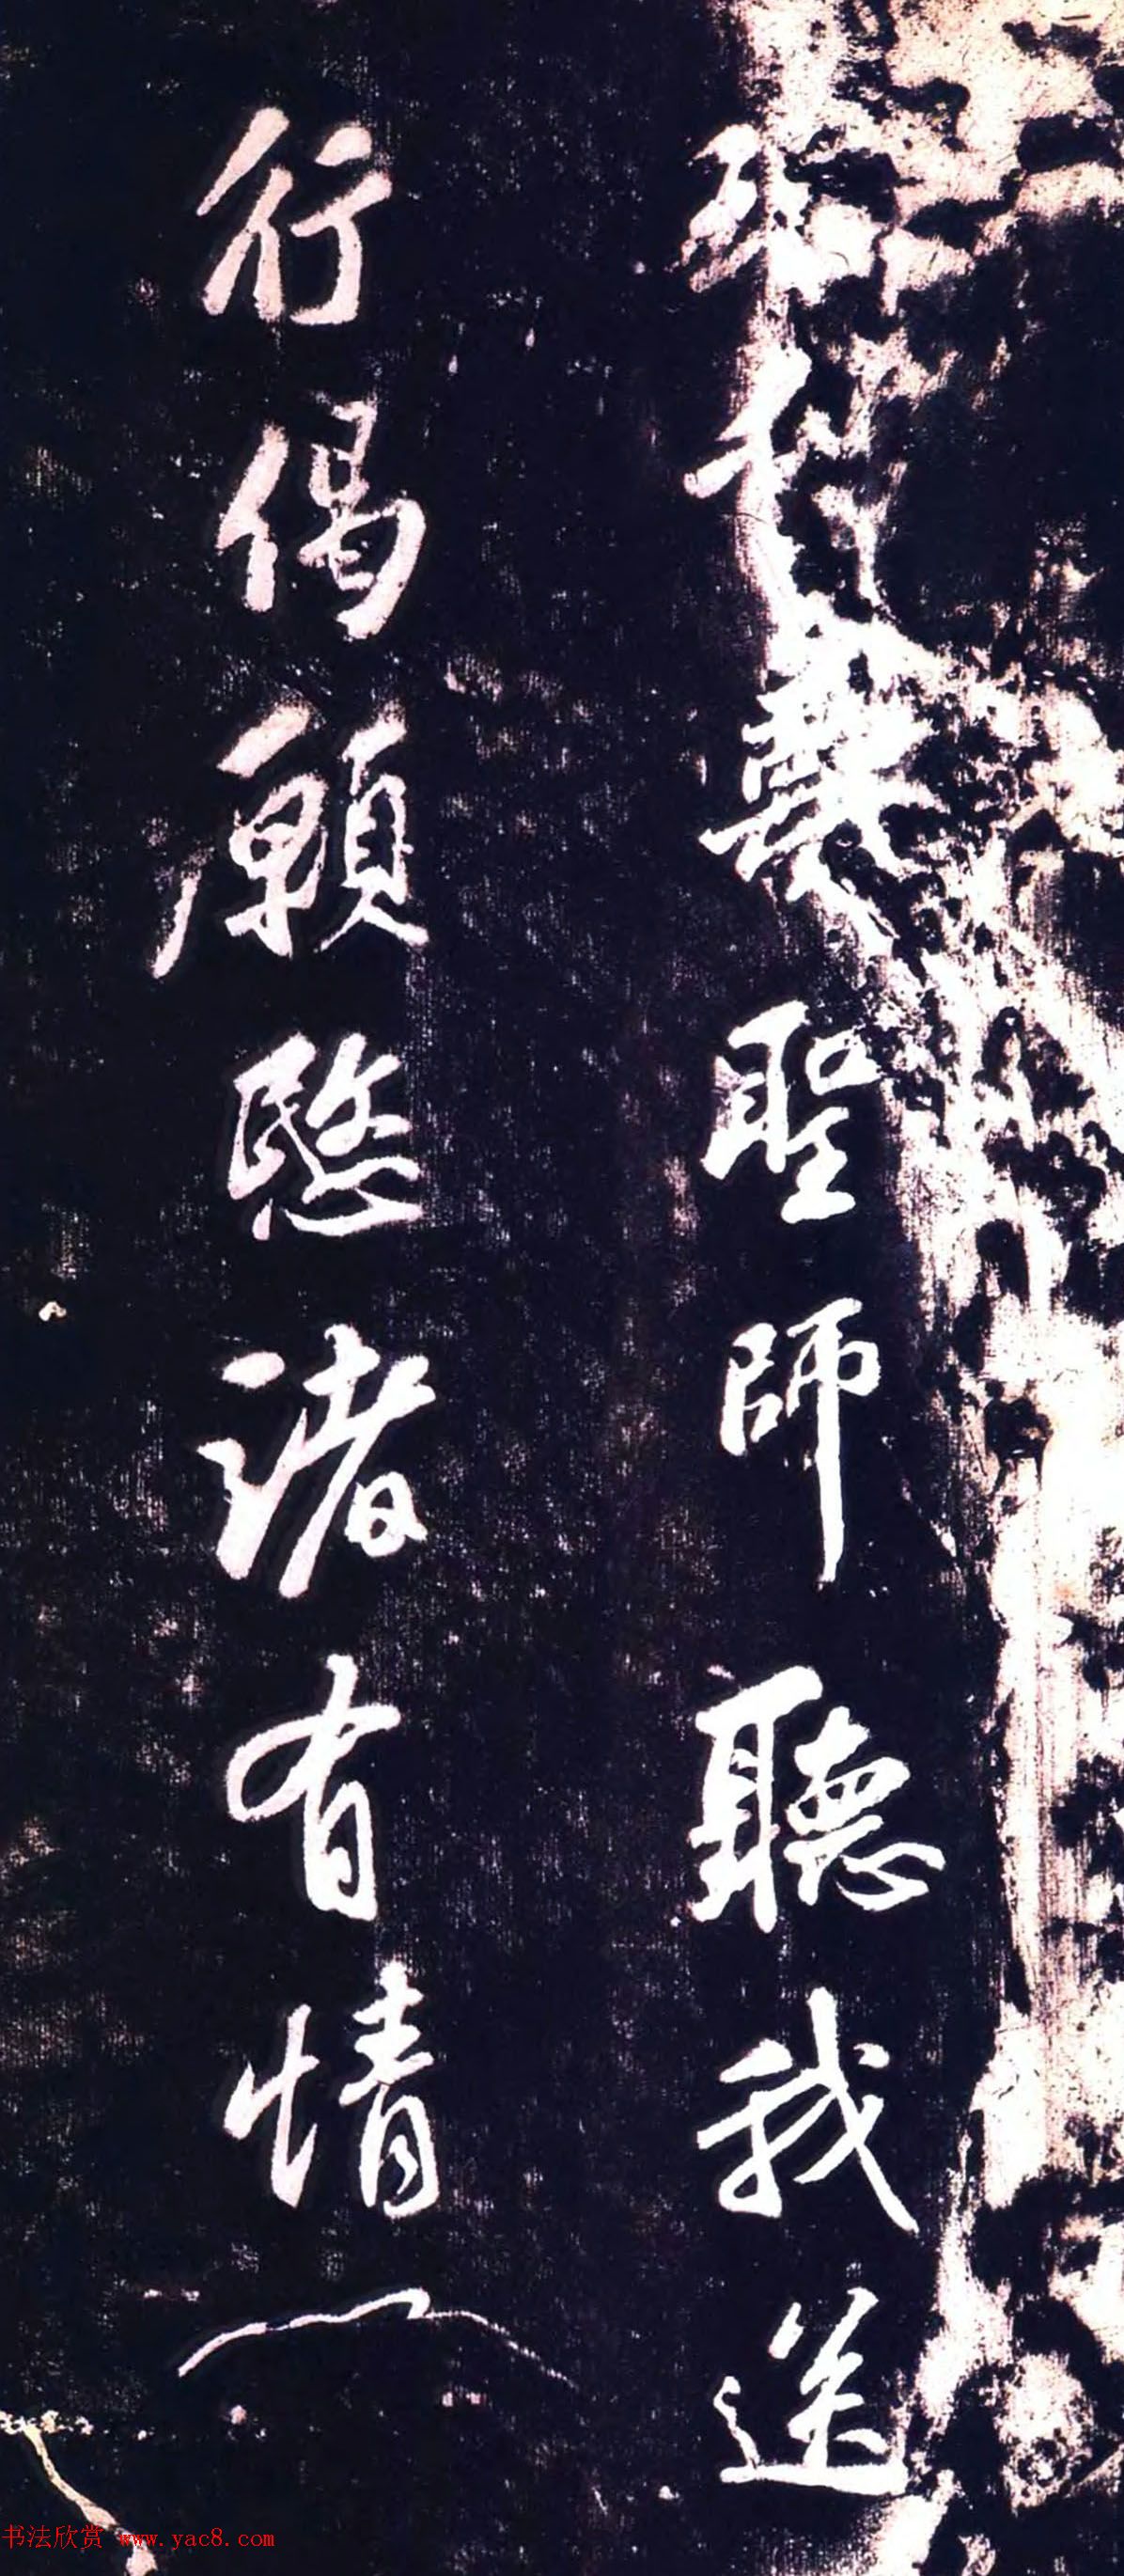 聖師聽我送
行偈願愍諸有情一
书法欣赏 www.yac8.com